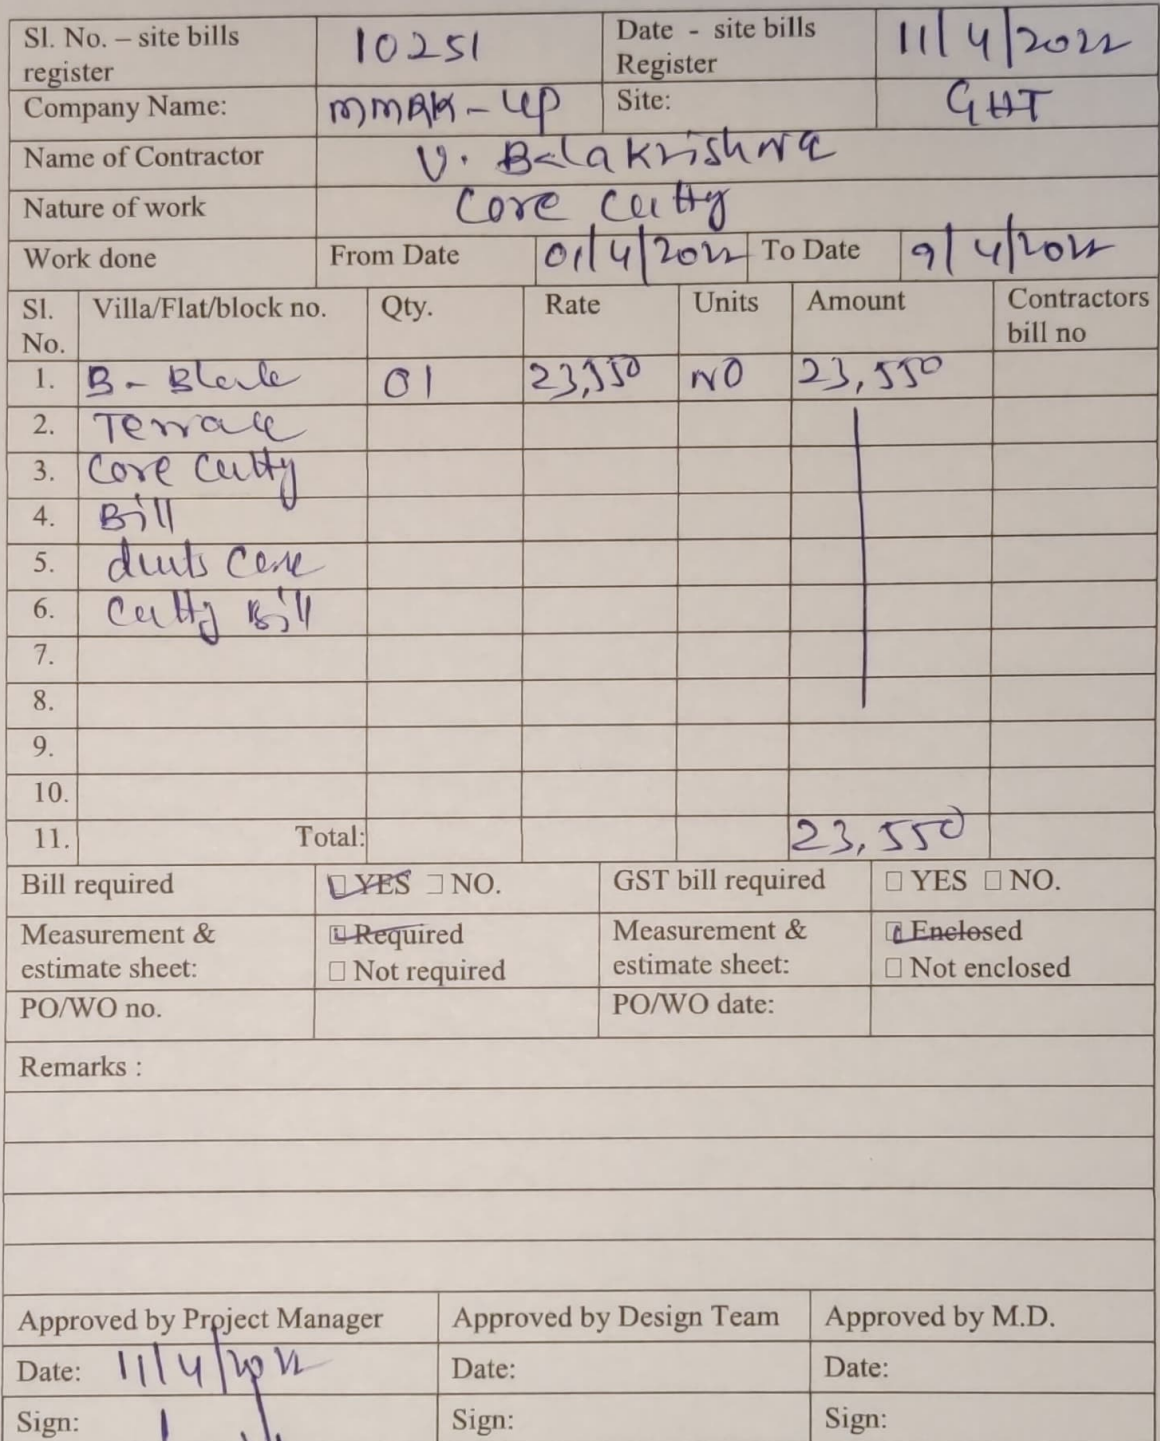 Sl. No. – site bills register 10251 Date - site bills Register 11/4/2022
Company Name: MMRK-UP Site: GHT
Name of Contractor V. Balakrishna
Nature of work Core Cutty
Work done From Date 01/4/2022 To Date 9/4/2022
Sl. No. Villa/Flat/block no. Qty. Rate Units Amount Contractors bill no
1. B-Block 01 23,550 NO 23,550
2. Terrace
3. Core Cutty
4. Bill
5. Core
6. Cutty Bill
7.
8.
9.
10.
11. Total: 23,550
Bill required YES NO. GST bill required YES NO.
Measurement & estimate sheet: Required Not required Measurement & estimate sheet: Enclosed Not enclosed
PO/WO no. PO/WO date:
Remarks :
Approved by Project Manager Approved by Design Team Approved by M.D.
Date: 11/4/2022 Date: Date:
Sign: Sign: Sign: